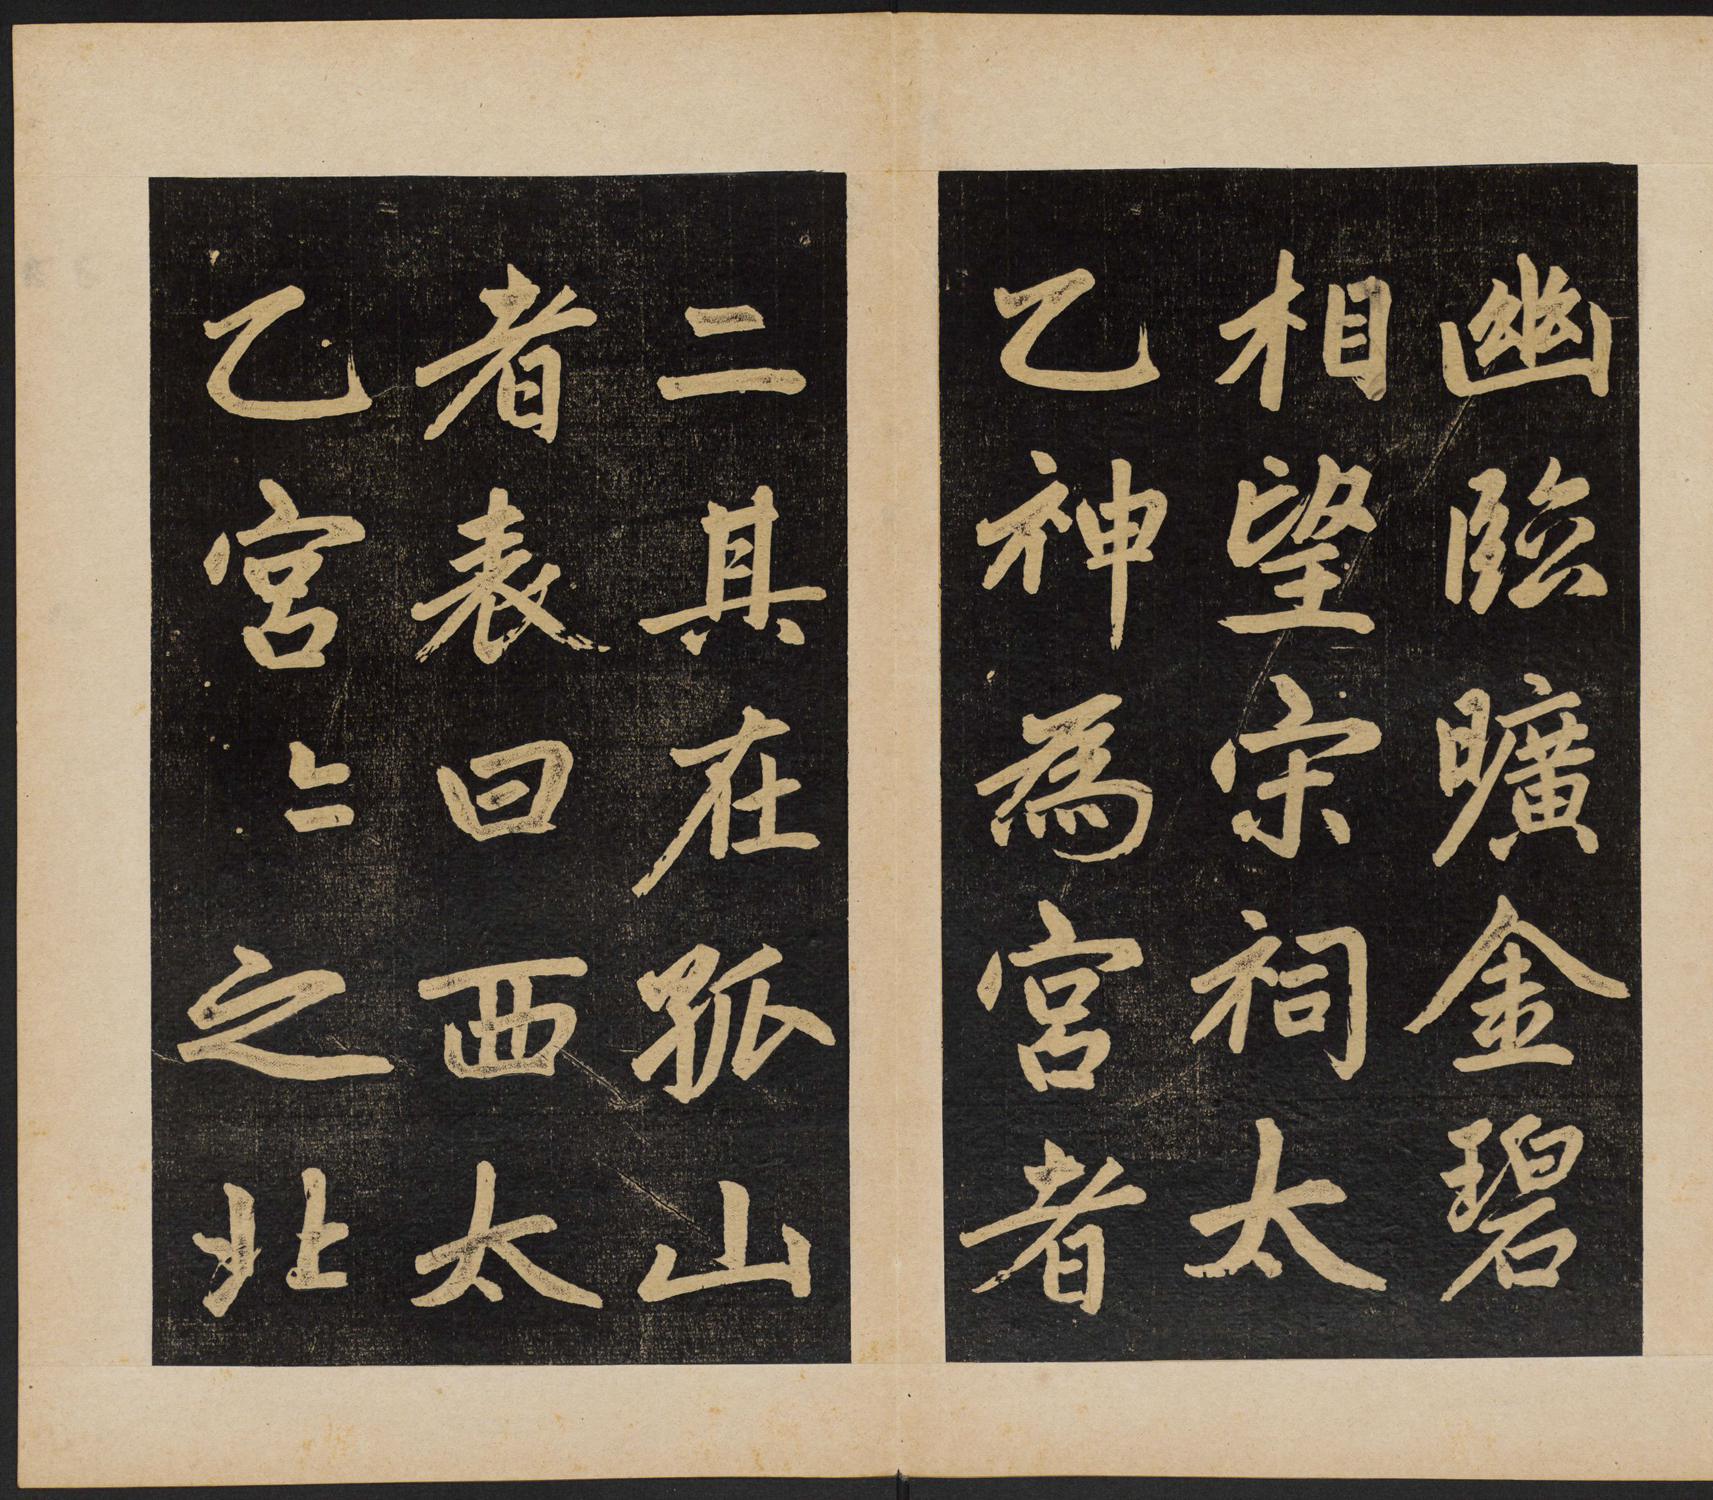 幽臨曠金碧
相望宋祠太
乙神為宮者
二其在孤山
者表曰西太
乙宮亠二之北